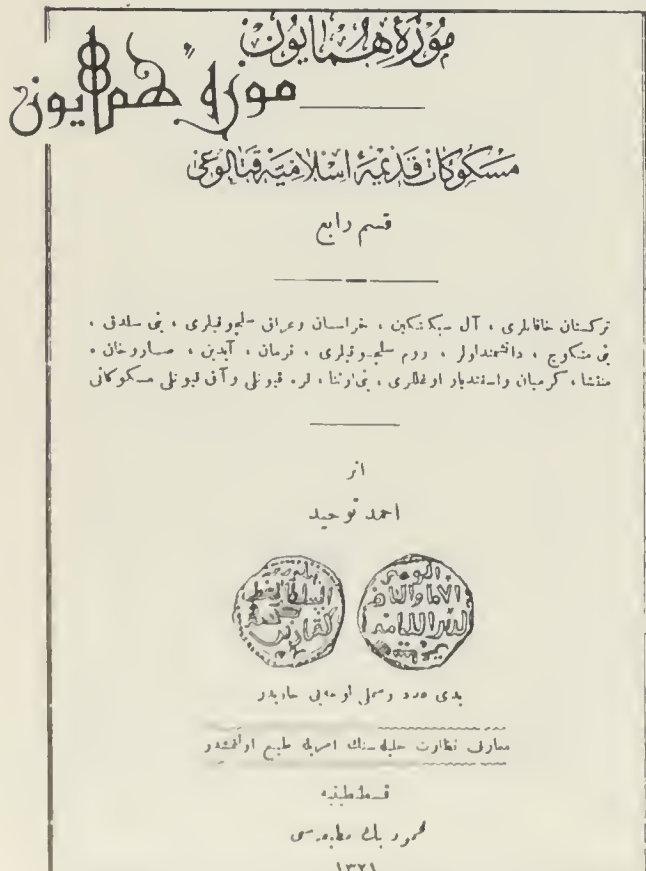 موزهٔ همایون
موزهٔ همایون
مسكوكات قديمهٔ اسلاميه قتالوغی
قسم رابع
تركستان خاقانلری ، آل سبكتكين ، خراسان وعراق سلجوقيلری ، بنی سلدق ،
بنی منكوج ، دانشمنداولر ، روم سلجوقيلری ، قرمان ، آيدين ، صاروخان ،
منتشا ، كرميان واسفنديار اوغللری ، بنی ارتنا ، قره قيونلی وآق قيونلی مسكوكاتی
اثر
احمد توحيد
السلطان
يدی عدد رسملی لوحه‌يی حاويدر
معارف نظارت جليله‌سنك امريله طبع اولنمشدر
قسطنطينيه
محمود بك مطبعه‌سی
١٣٢١